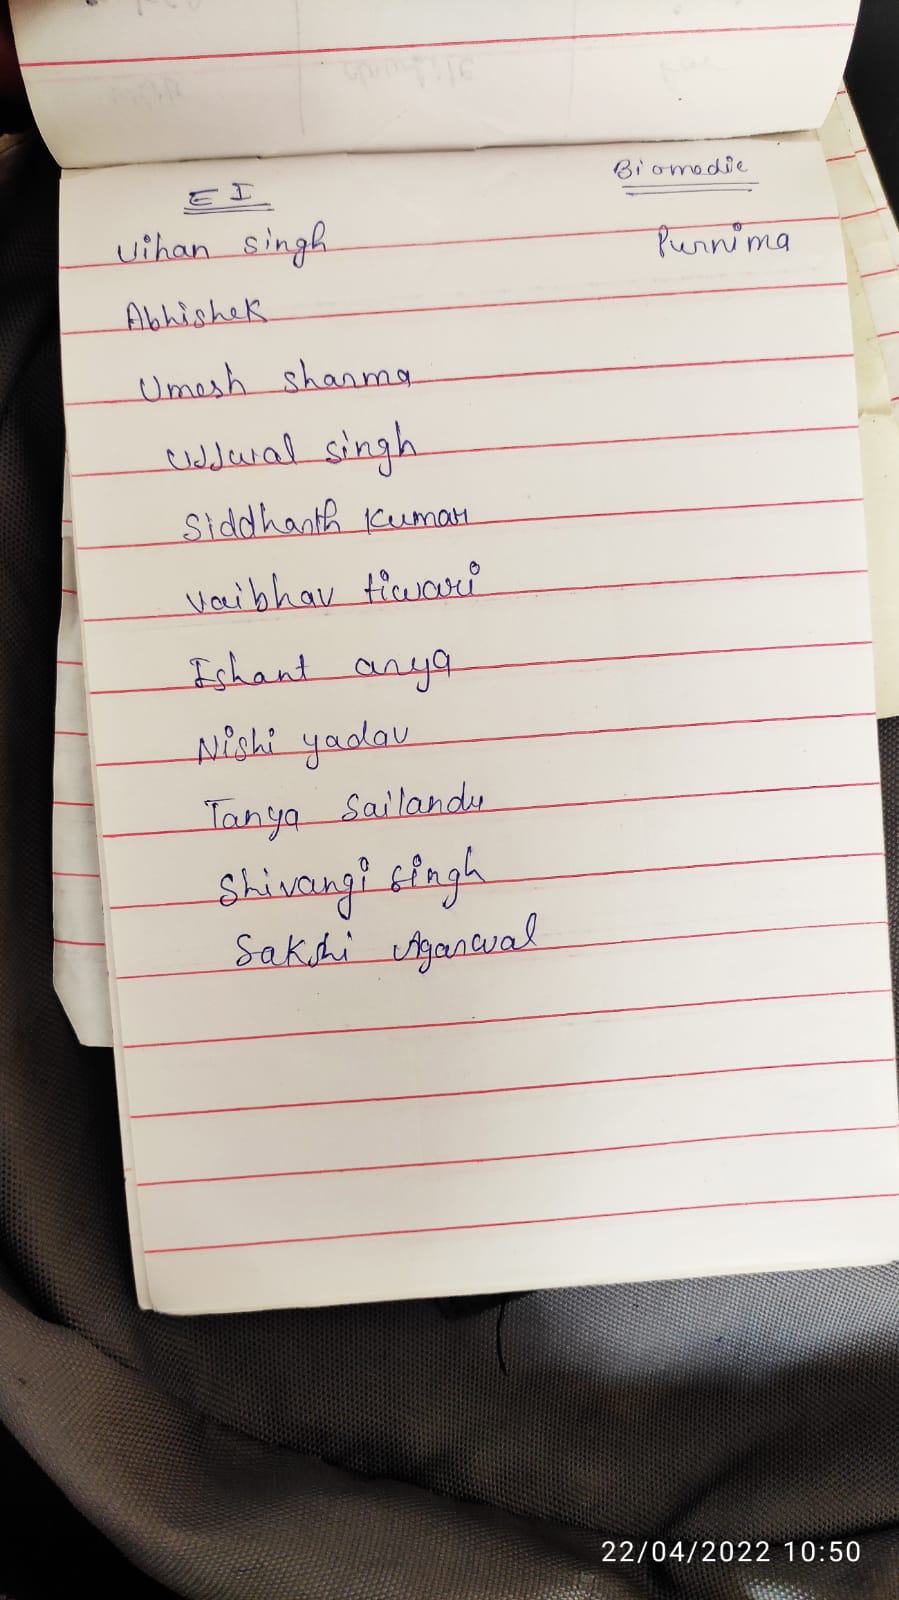 EI Biomedic
Vihan Singh Purnima
Abhishek
Umesh Sharma
Ujjwal Singh
Siddhanth Kumar
Vaibhav tiwari
Ishant arya
Nishi yadav
Tanya Sailandu
Shivangi Singh
Sakshi Agarwal
22/04/2022 10:50